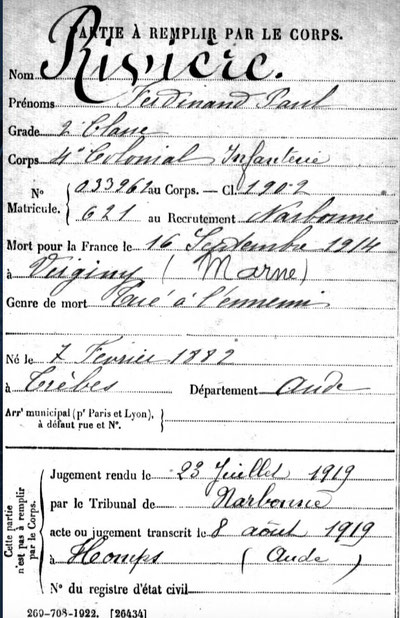 PARTIE À REMPLIR PAR LE CORPS.
Nom Rivière.
Prénoms Ferdinand Paul
Grade 2e Classe
Corps 4e Colonial Infanterie
No Matricule. { 033962 au Corps. — Cl. 1902
621 au Recrutement Narbonne
Mort pour la France le 16 Septembre 1914
à Virginy (Marne)
Genre de mort Tué à l'ennemi
Né le 7 Février 1882
à Trèbes Département Aude
Arrt municipal (pr Paris et Lyon), à défaut rue et No. }
Cette partie n'est pas à remplir par le Corps.
Jugement rendu le 23 Juillet 1919
par le Tribunal de Narbonne
acte ou jugement transcrit le 8 août 1919
à Homps (Aude)
No du registre d'état civil
269-708-1922. [26434]